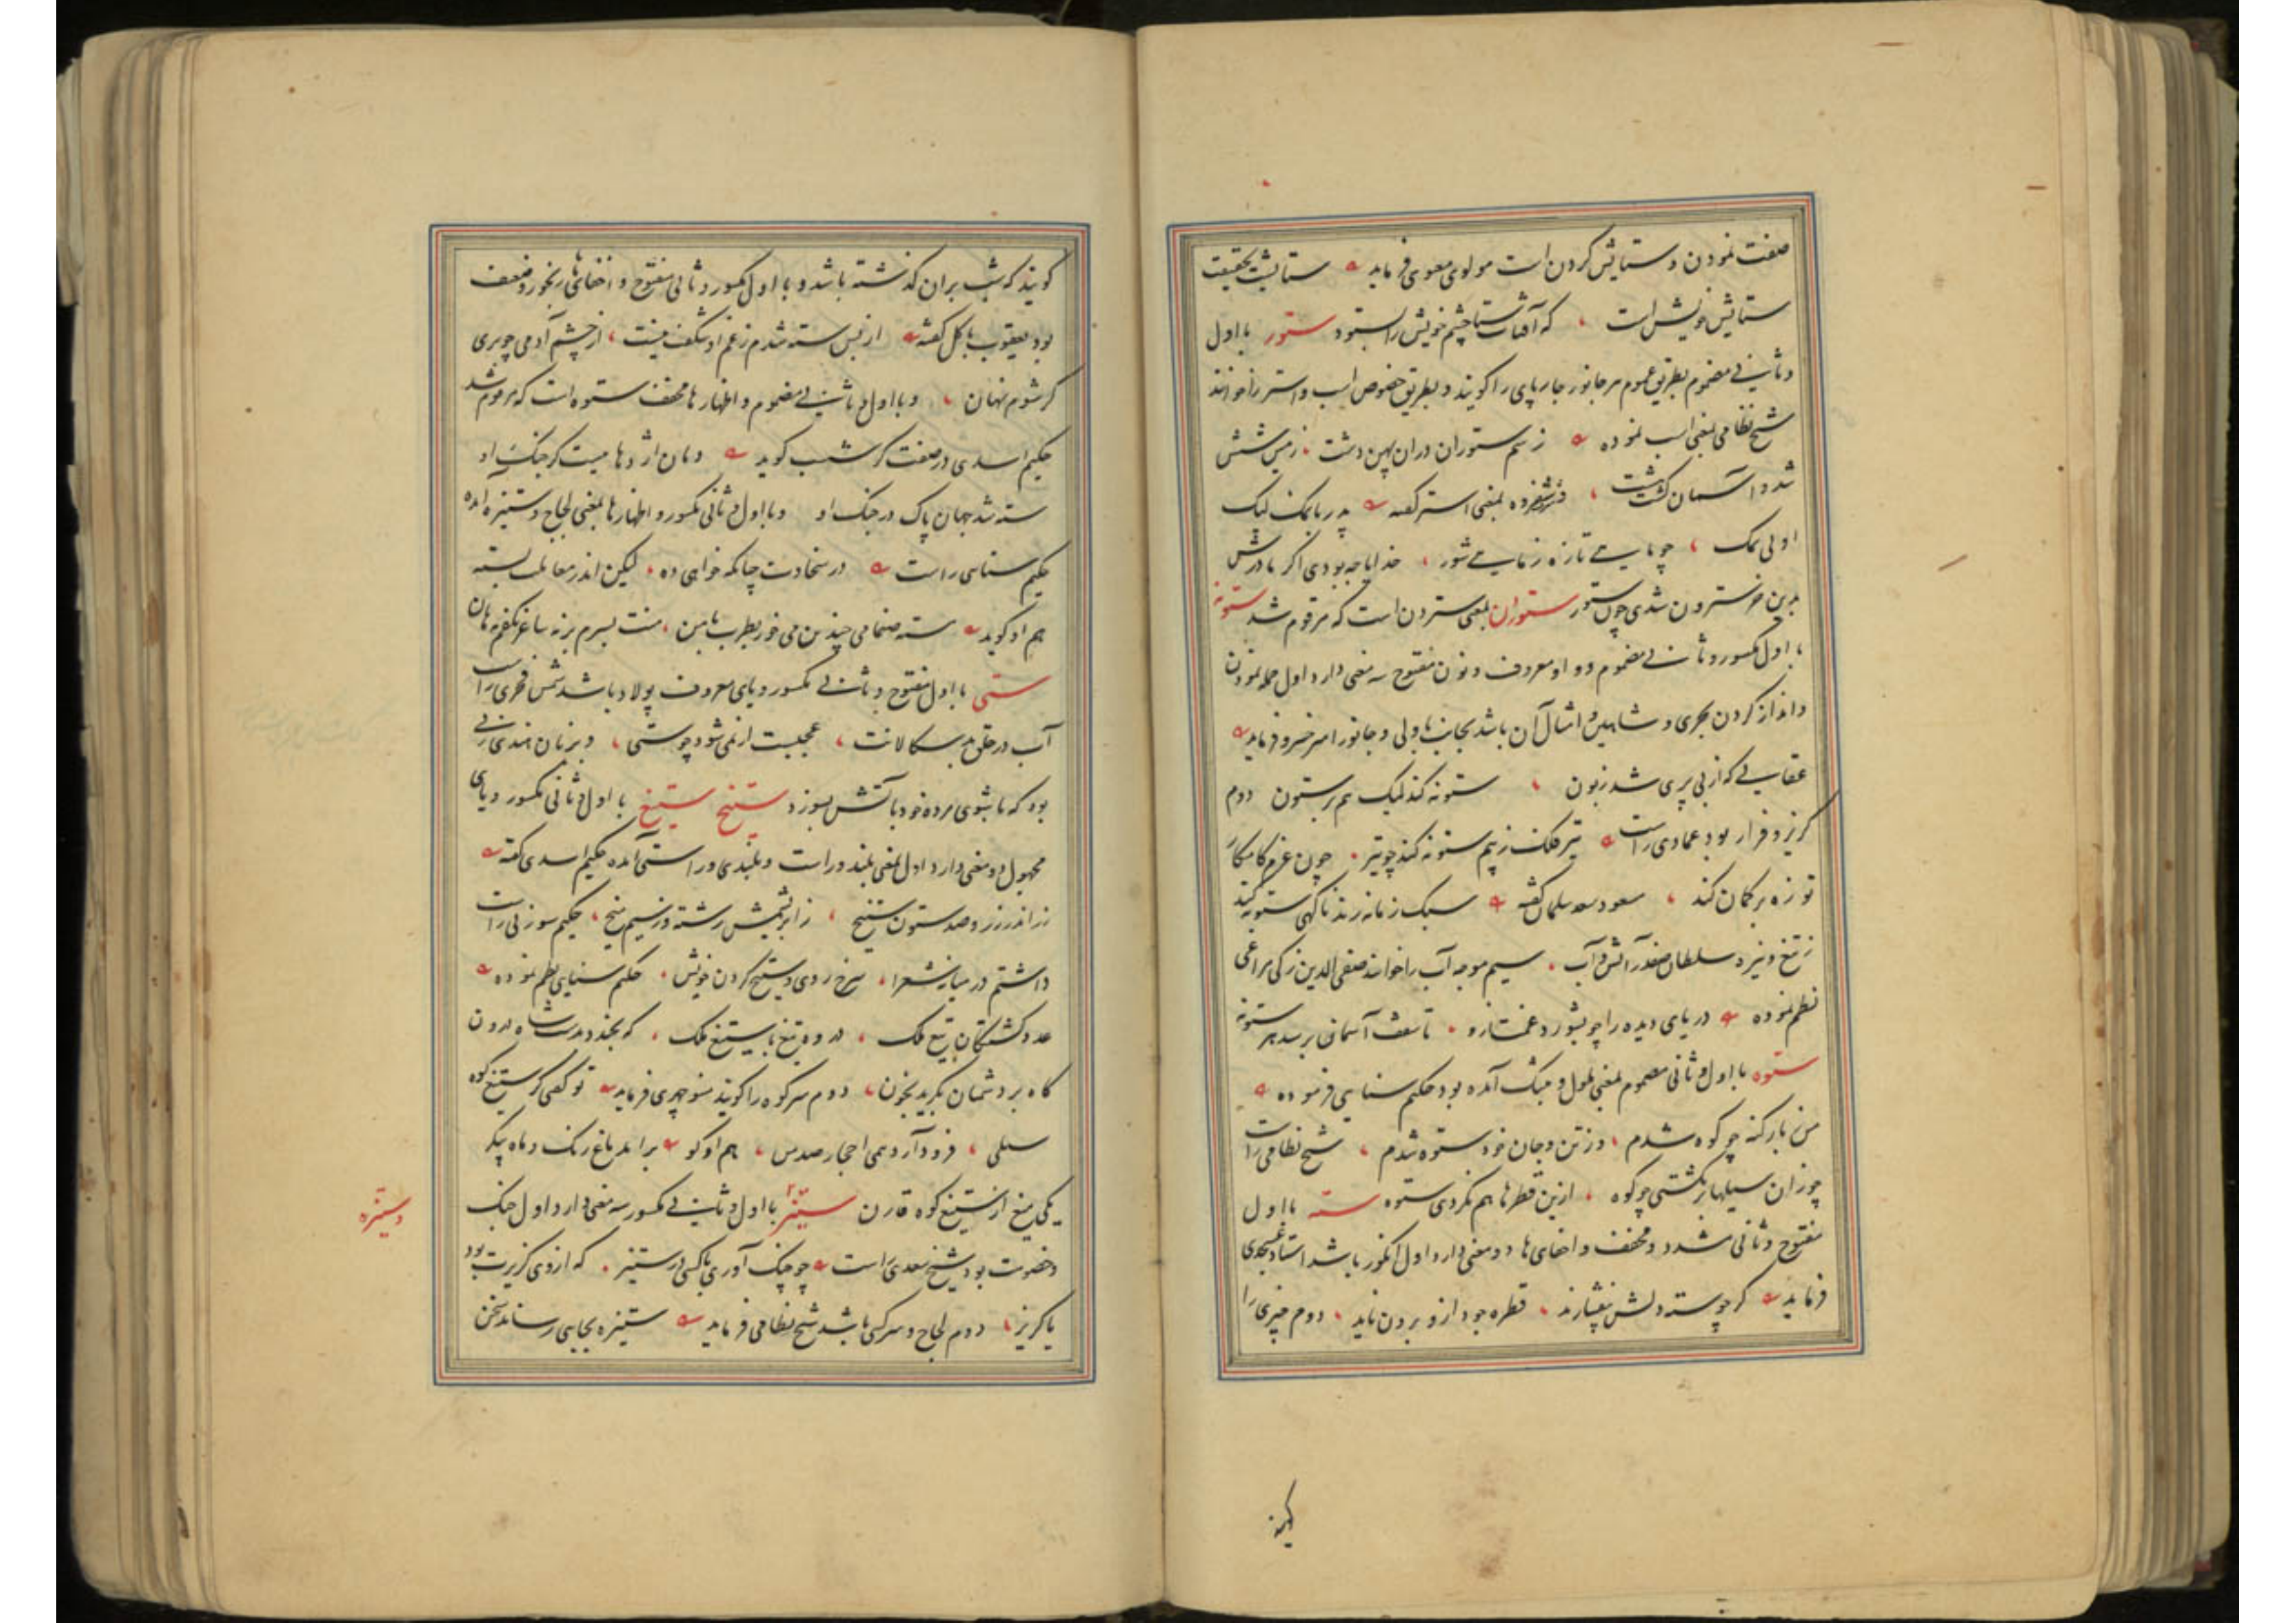 صفت نمودن و ستایش کردن است مولوی معنوی فرماید ستایشت بحقیقت
ستایش خویش است که آفتاب ستا چشم خویش را بستود ستور با اول
و ثانی مضموم بطریق عموم هر جانور چارپای را گویند و بطریق خصوص اسب و استر را خوانند
شیخ نظامی بمعنی اسب نموده ز سم ستوران دران پهن دشت زمین شش
شد و آسمان گشت هشت بمعنی استر گفته پدر با نمک لیک
او بی نمک چو تازه ز شور خدایا چه بودی اگر مادرش
بدین خر سترون شدی چون ستور ستورن بمعنی سترون است که مرقوم شد ستونه
با اول مکسور و ثانی مضموم و واو معروف و نون مفتوح سه معنی دارد اول حمله نمودن
و انداز کردن بحری و شاهین و امثال آن باشد بجانب و جانور امیر خسرو فرماید
عقابی که از بی پری شد زبون ستونه کند لیک هم بر ستون دوم
گریز و فرار بود عمادی راست تیر فلک ز بیم ستونه کند چو تیر چون عزم
تو زه بر کمان کند مسعود سعد سلمان گفته سبک زمانه زند ناگهی ستونه کند
ز تیغ و نیزه سلطان صفدر آتش و آب سیم موجه آب را خوانند صفی الدین زکی مراغی
نظم نموده دریای دیده را چو بشورد غمت تا سقف آسمان برسد هر ستونه
ستوه با اول و ثانی مضموم بمعنی ملول و تنگ آمده بود حکیم سنایی فرموده
من بار گنه چو کوه شدم وز تن و جان خود ستوه شدم شیخ نظامی راست
چو زان سیلها بر نگشتی چو کوه ازین قطرها هم نگردی ستوه سته با اول
مفتوح و ثانی مشدد و مخفف و اخفای ها دو معنی دارد اول انگور باشد استاد عسجدی
فرماید گر چو سته دلش بیفشارند قطره جود ازو برون ناید دوم چیزی را
گویند که شب بران گذشته باشد و با اول مکسور و ثانی مفتوح و اخفای ها رنجور و ضعیف
بود یعقوب گفته از بس سته شدم ز غم او شگفت نیست از چشم آدمی چو پری
گر شوم نهان و با اول و ثانی مضموم و اظهار ها مخفف ستوه است که مرقوم شد
حکیم اسدی در صفت گرشسب گوید دمان اژدها کز جنگ او
سته شد جهان پاک در چنگ او و با اول و ثانی مکسور و اظهار ها بمعنی لجاج و ستیزه آمده
حکیم سنایی راست در سخاوت چنانکه خواهی ده لیکن اندر معاملت بسته
هم او گوید سته صنما می چندین می خور بطرب با من منت ببرم برنه ساغر
ستی با اول مفتوح و ثانی مکسور و یای معروف پولاد باشد شمس فخری راست
آب در حلق بدسگالانت عجبست ار نمی شود چو ستی و بزبان هندی زنی
بود که با شوی مرده خود بآتش بسوزد ستیخ ستیغ با اول و ثانی مکسور و یای
مجهول دو معنی دارد اول بمعنی بلند و راست و بلندی و راستی آمده حکیم اسدی گفته
زر اندر زر و صد ستون ستیخ ز ابریشمش رشته و ز سیم میخ حکیم سوزنی راست
داشتم در میانه شعرا سرخ روی و ستیخ گردن خویش حکیم سنایی نظم نموده
عدو کشتگان تیغ ملک در و تیغ با ستیغ فلک که بخندد بدست شاه درون
گاه بر دشمنان بگرید بخون دوم سر کوه را گویند منوچهری فرماید تو گفتی کز ستیغ کوه
سیلی فرود آرد همی احجار صد من هم او گوید بر آمد زاغ رنگ و ماه پیکر
یکی میغ از ستیغ کوه قارن ستیز با اول و ثانی مکسور سه معنی دارد اول جنگ
و خصومت بود شیخ سعدی راست چو جنگ آوری با کسی در ستیز که از وی گزیرت بود
یا گریز دوم لجاج و سرکشی باشد شیخ نظامی فرماید ستیزه بجایی رساند سخن
و ستیزه